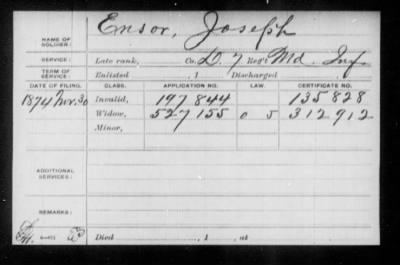 Ensor, Joseph
NAME OF SOLDIER:
SERVICE: Late rank, Co. D, 7 Reg't Md. Inf.
TERM OF SERVICE: Enlisted , 1 Discharged
DATE OF FILING. CLASS. APPLICATION NO. LAW. CERTIFICATE NO.
1874 Nov. 30 Invalid, 197844 135828
Widow, 527155 0 5 312912
Minor,
ADDITIONAL SERVICES:
REMARKS:
Died , 1 , at